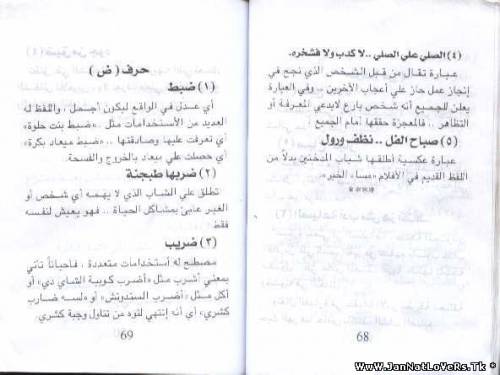 (٤) الصلي علي الصلي ..لا كدب ولا فشخره.
عبارة تقال من قبل الشخص الذي نجح في
إنجاز عمل حاز علي أعجاب الأخرين .. وفي العبارة
يعلن للجميع أنه شخص بارع لايدعي المعرفة أو
التظاهر .. فالمعجزة حققها أمام الجميع
(٥) صباح الفل ..نظف ورول
عبارة عكسية أطلقها شباب المدخنين بدلاً من
اللفظ القديم في الأفلام «مساء الخير».
****
68
حرف ( ض )
(١) ضبط
أي عدل في الواقع ليكون أجمل ، واللفظ له
العديد من الأستخدامات مثل .. «ضبط بنت حلوة»
أي تعرفت عليها وصادقتها .. «ضبط ميعاد بكرة»
أي حصلت علي ميعاد بالخروج والفسحة.
(٢) ضربها طبجنة
تطلق علي الشاب الذي لا يهمه أي شخص أو
الغير عابئ بمشاكل الحياة .. فهو يعيش لنفسه
فقط
(٣) ضريب
مصطلح له أستخدامات متعددة ، فأحياناً تأتي
بمعني أشرب مثل «أضرب كوبية الشاي دي» أو
أكل مثل «أضرب السندرتش» أو «لسه ضارب
كشري» أي أنه إنتهي لتوه من تناول وجبة كشري.
69
Www.JanNatLoVeRs.Tk *